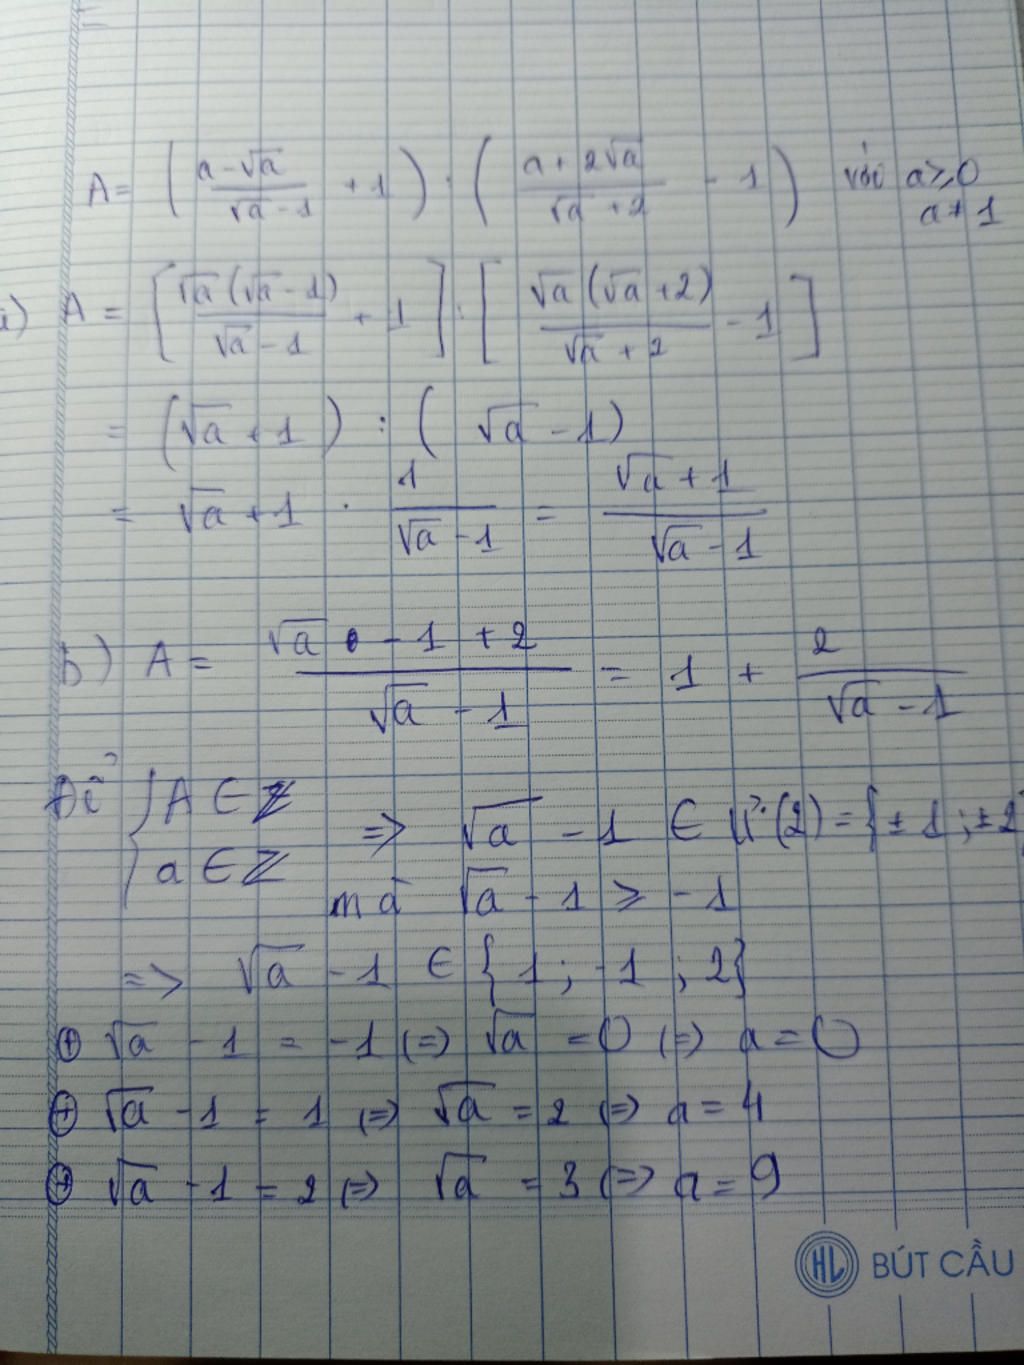 A = ( (a - √a)/(√a - 1) + 1 ) : ( (a + 2√a)/(√a + 2) - 1 ) với a ≥ 0
a ≠ 1
a) A = [ √a(√a - 1)/(√a - 1) + 1 ] : [ √a(√a + 2)/(√a + 2) - 1 ]
= (√a + 1) : ( √a - 1)
= √a + 1 . 1/(√a - 1) = (√a + 1)/(√a - 1)
b) A = (√a - 1 + 2)/(√a - 1) = 1 + 2/(√a - 1)
Để { A ∈ Z
a ∈ Z
=> √a - 1 ∈ Ư(2) = {± 1 ; ± 2
mà √a - 1 ≥ -1
=> √a - 1 ∈ {1 ; -1 ; 2}
⊕ √a - 1 = -1 (=) √a = 0 (=) a = 0
⊕ √a - 1 = 1 (=) √a = 2 (=) a = 4
⊕ √a - 1 = 2 (=) √a = 3 (=) a = 9
HL BÚT CẦU